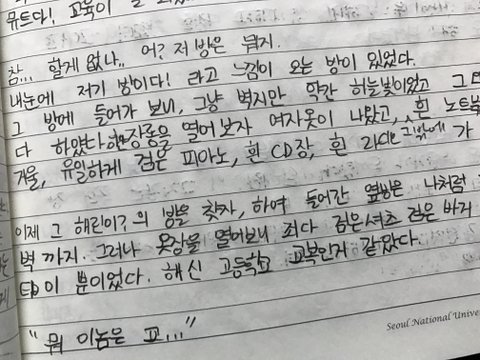 뮤트다! 교육이
참... 할게 없나.. 어? 저 방은 뭐지.
내눈에 저기 방이다! 라고 느낌이 오는 방이 있었다.
그 방에 들어가 보니, 그냥 벽지만 약간 하늘빛이었고 그
다 하얐다 장롱을 열어보자 여자옷이 나왔고, 흰 노트북
거울, 유일하게 검은 피아노, 흰 CD장, 흰 라디오 그밖에 가
이제 그 해린이?의 방을 찾자, 하여 들어간 옆방은 나처럼
벽까지. 그러나 옷장을 열어보니 죄다 검은셔츠 검은 바지
이 뿐이었다. 해신 고등학교 교복인거 같았다.
"뭐 이놈은 교..."
Seoul National Unive